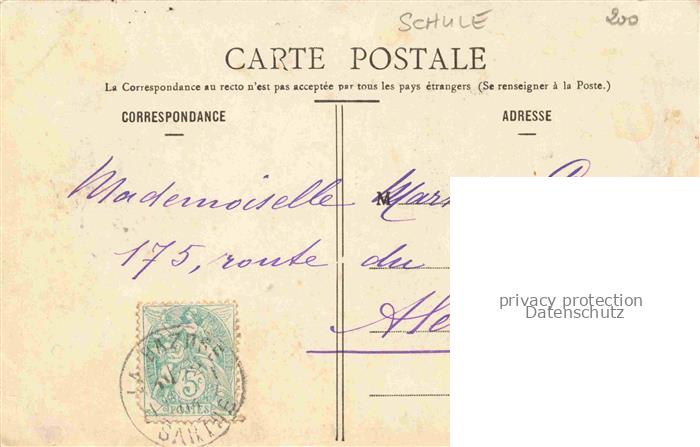 SCHULE 200
CARTE POSTALE
La Correspondance au recto n'est pas acceptée par tous les pays étrangers (Se renseigner à la Poste.)
CORRESPONDANCE ADRESSE
Mademoiselle
M
175, route du
privacy protection
Datenschutz
5c
POSTES